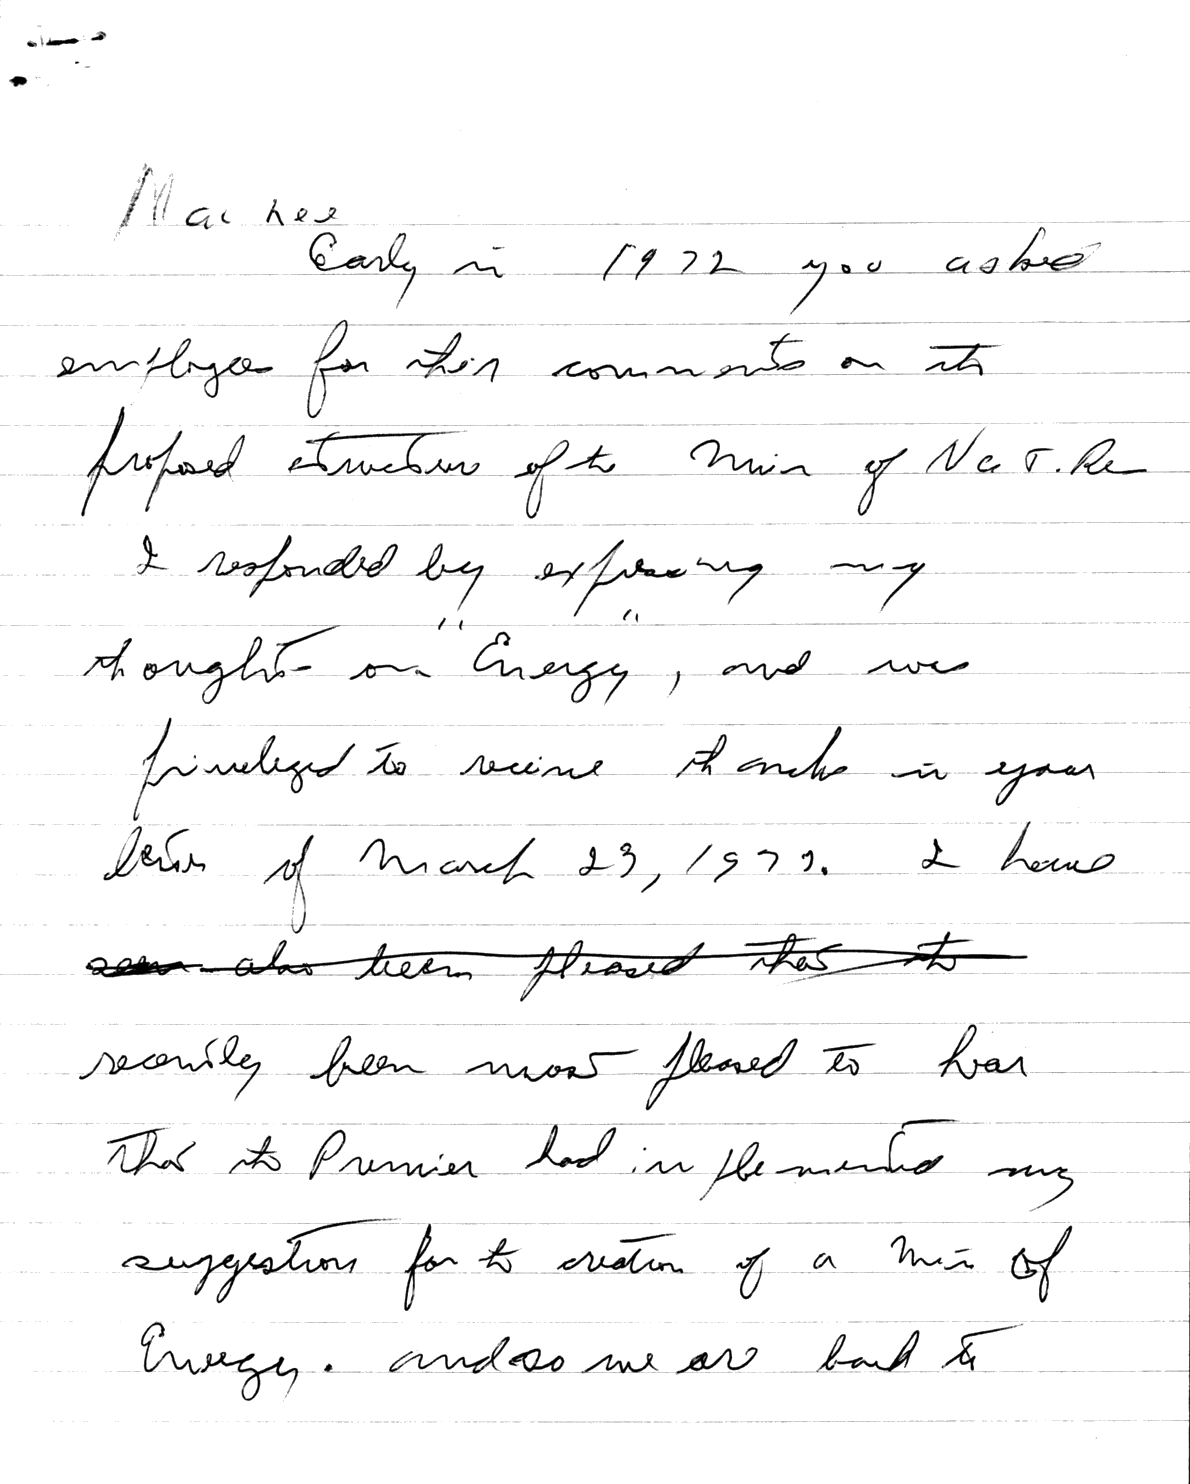 Mac nee
Early in 1972 you asked
employees for their comments on the
proposed structure of the Min of Nat. Re
I responded by expressing my
thoughts on "Energy", and was
priveleged to receive thanks in your
letter of March 23, 1972. I have
seen also been pleased that the
recently been most pleased to hear
that the Premier had implemented my
suggestion for the creation of a Min of
Energy. and so we are back to